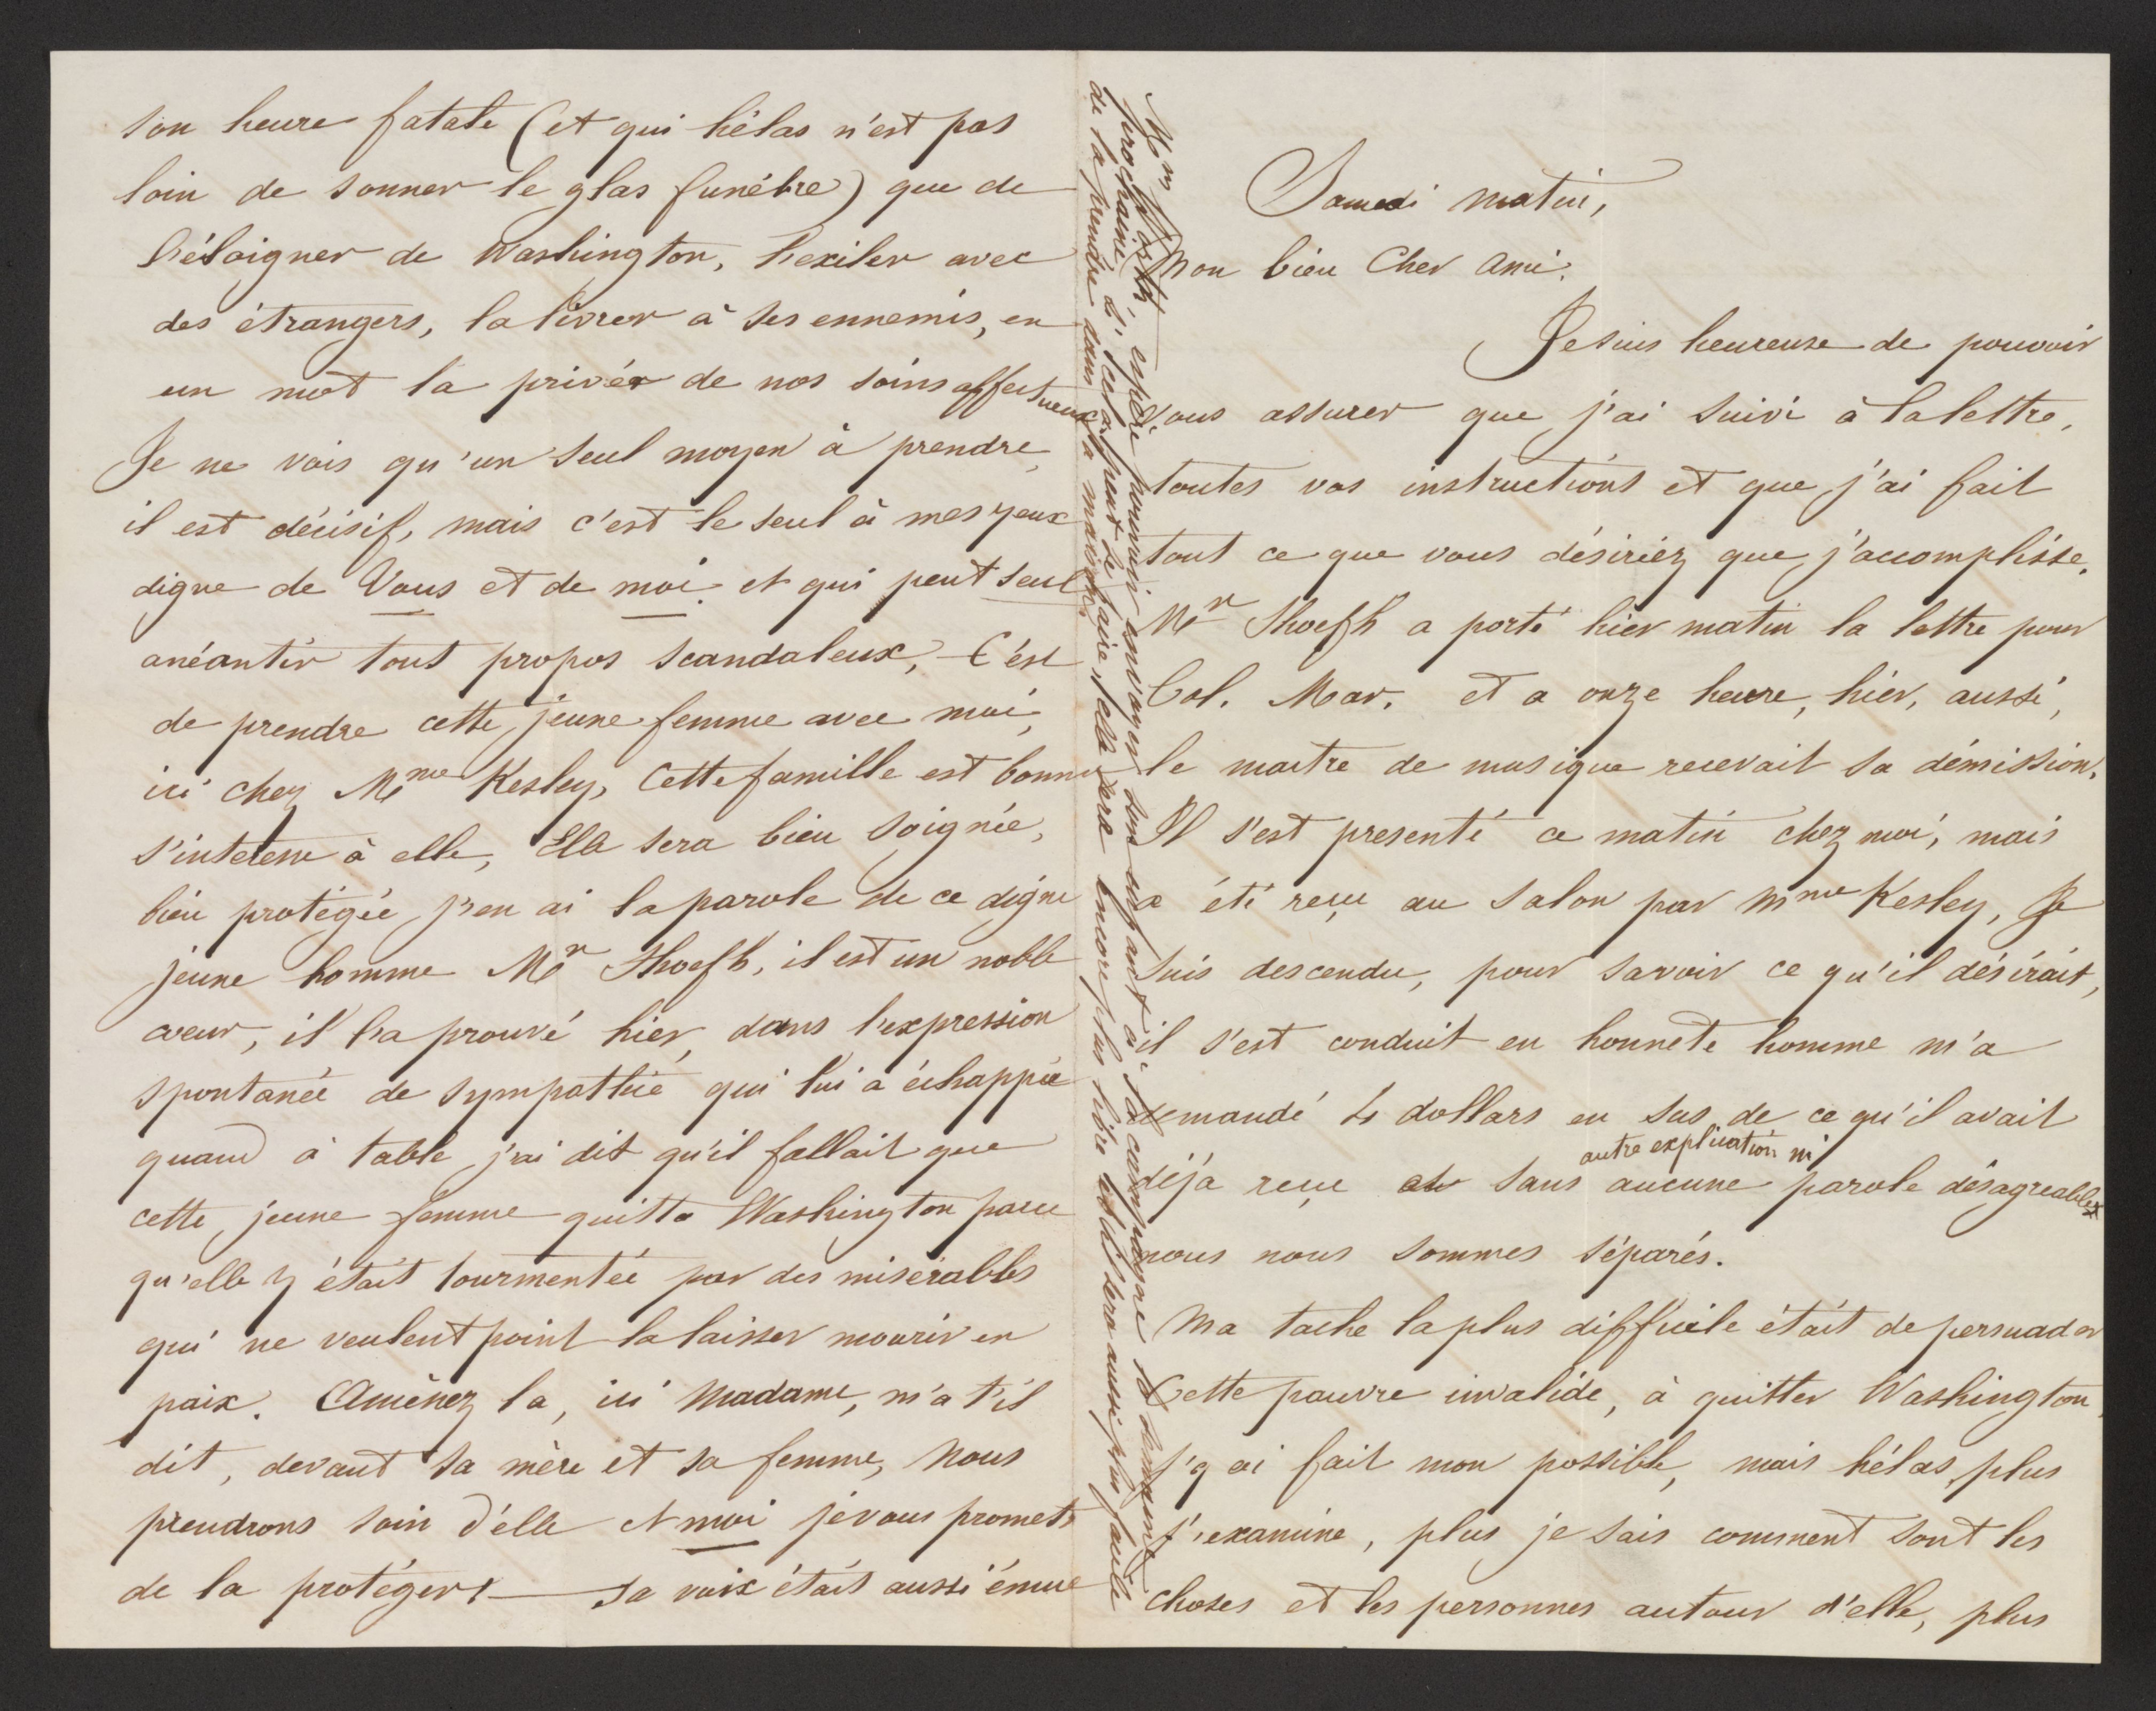 Samedi matin,
Mon bien Cher Ami.
Je suis heureuse de pouvoir
vous assurer que j'ai suivi à la lettre,
toutes vos instructions et que j'ai fait
tout ce que vous désiriéz que j'accomplisse.
Mr Shoefh a porté hier matin la lettre pour
Col. Mar. et a onze heure, hier, aussi,
le maitre de musique recevait sa démission.
Il s'est presenté ce matin chez moi, mais
a été reçu au salon par Mme Kesley, Je
suis descendu, pour savoir ce qu'il désirait,
il s'est conduit en honnete homme m'a
demandé 4 dollars en sus de ce qu'il avait
déjà reçu et sans autre explication ni aucune parole désagreables
nous nous sommes séparés.
Ma tache la plus difficile était de persuader
Cette pauvre invalide, à quitter Washington,
j'y ai fait mon possible, mais hélas, plus
j'examine, plus je sais comment sont les
choses et les personnes autour d'elle, plus
son heure fatale (et qui hélas n'est pas
loin de sonner le glas funébre) que de
l'éloigner de Washington, l'exiler avec
des étrangers, la livrer à ses ennemis, en
un mot la priver de nos soins affectueux
Je ne vois qu'un seul moyen à prendre,
il est décisif, mais c'est le seul à mes yeux
digne de Vous et de moi et qui peut seul
anéantir tout propos scandaleux, C'est
de prendre cette jeune femme avec moi,
ici chez Mme Kesley, Cette famille est bonne
s'interesse à elle, Elle sera bien soignée,
bien protégée, j'en ai la parole de ce digne
jeune homme Mr Shoefh, il est un noble
cœur, il l'a prouvé hier, dans l'expression
spontanée de sympathie qui lui a échappée
quand à table j'ai dit qu'il fallait que
cette jeune femme quitta Washington parce
qu'elle y était tourmentée par des misérables
qui ne veulent point la laisser mourir en
paix. Aménez la, ici Madame, m'a t'il
dit, devant sa mère et sa femme, Nous
prendrons soin d'elle et moi je vous promets
de la protéger! — sa voix était aussi émue
espère pouvoir envoyer son enfant à la campagne la semaine
prochaine si cela peut se faire, elle sera encore plus libre et il sera aussi plus facile
de la prendre dans la maison.